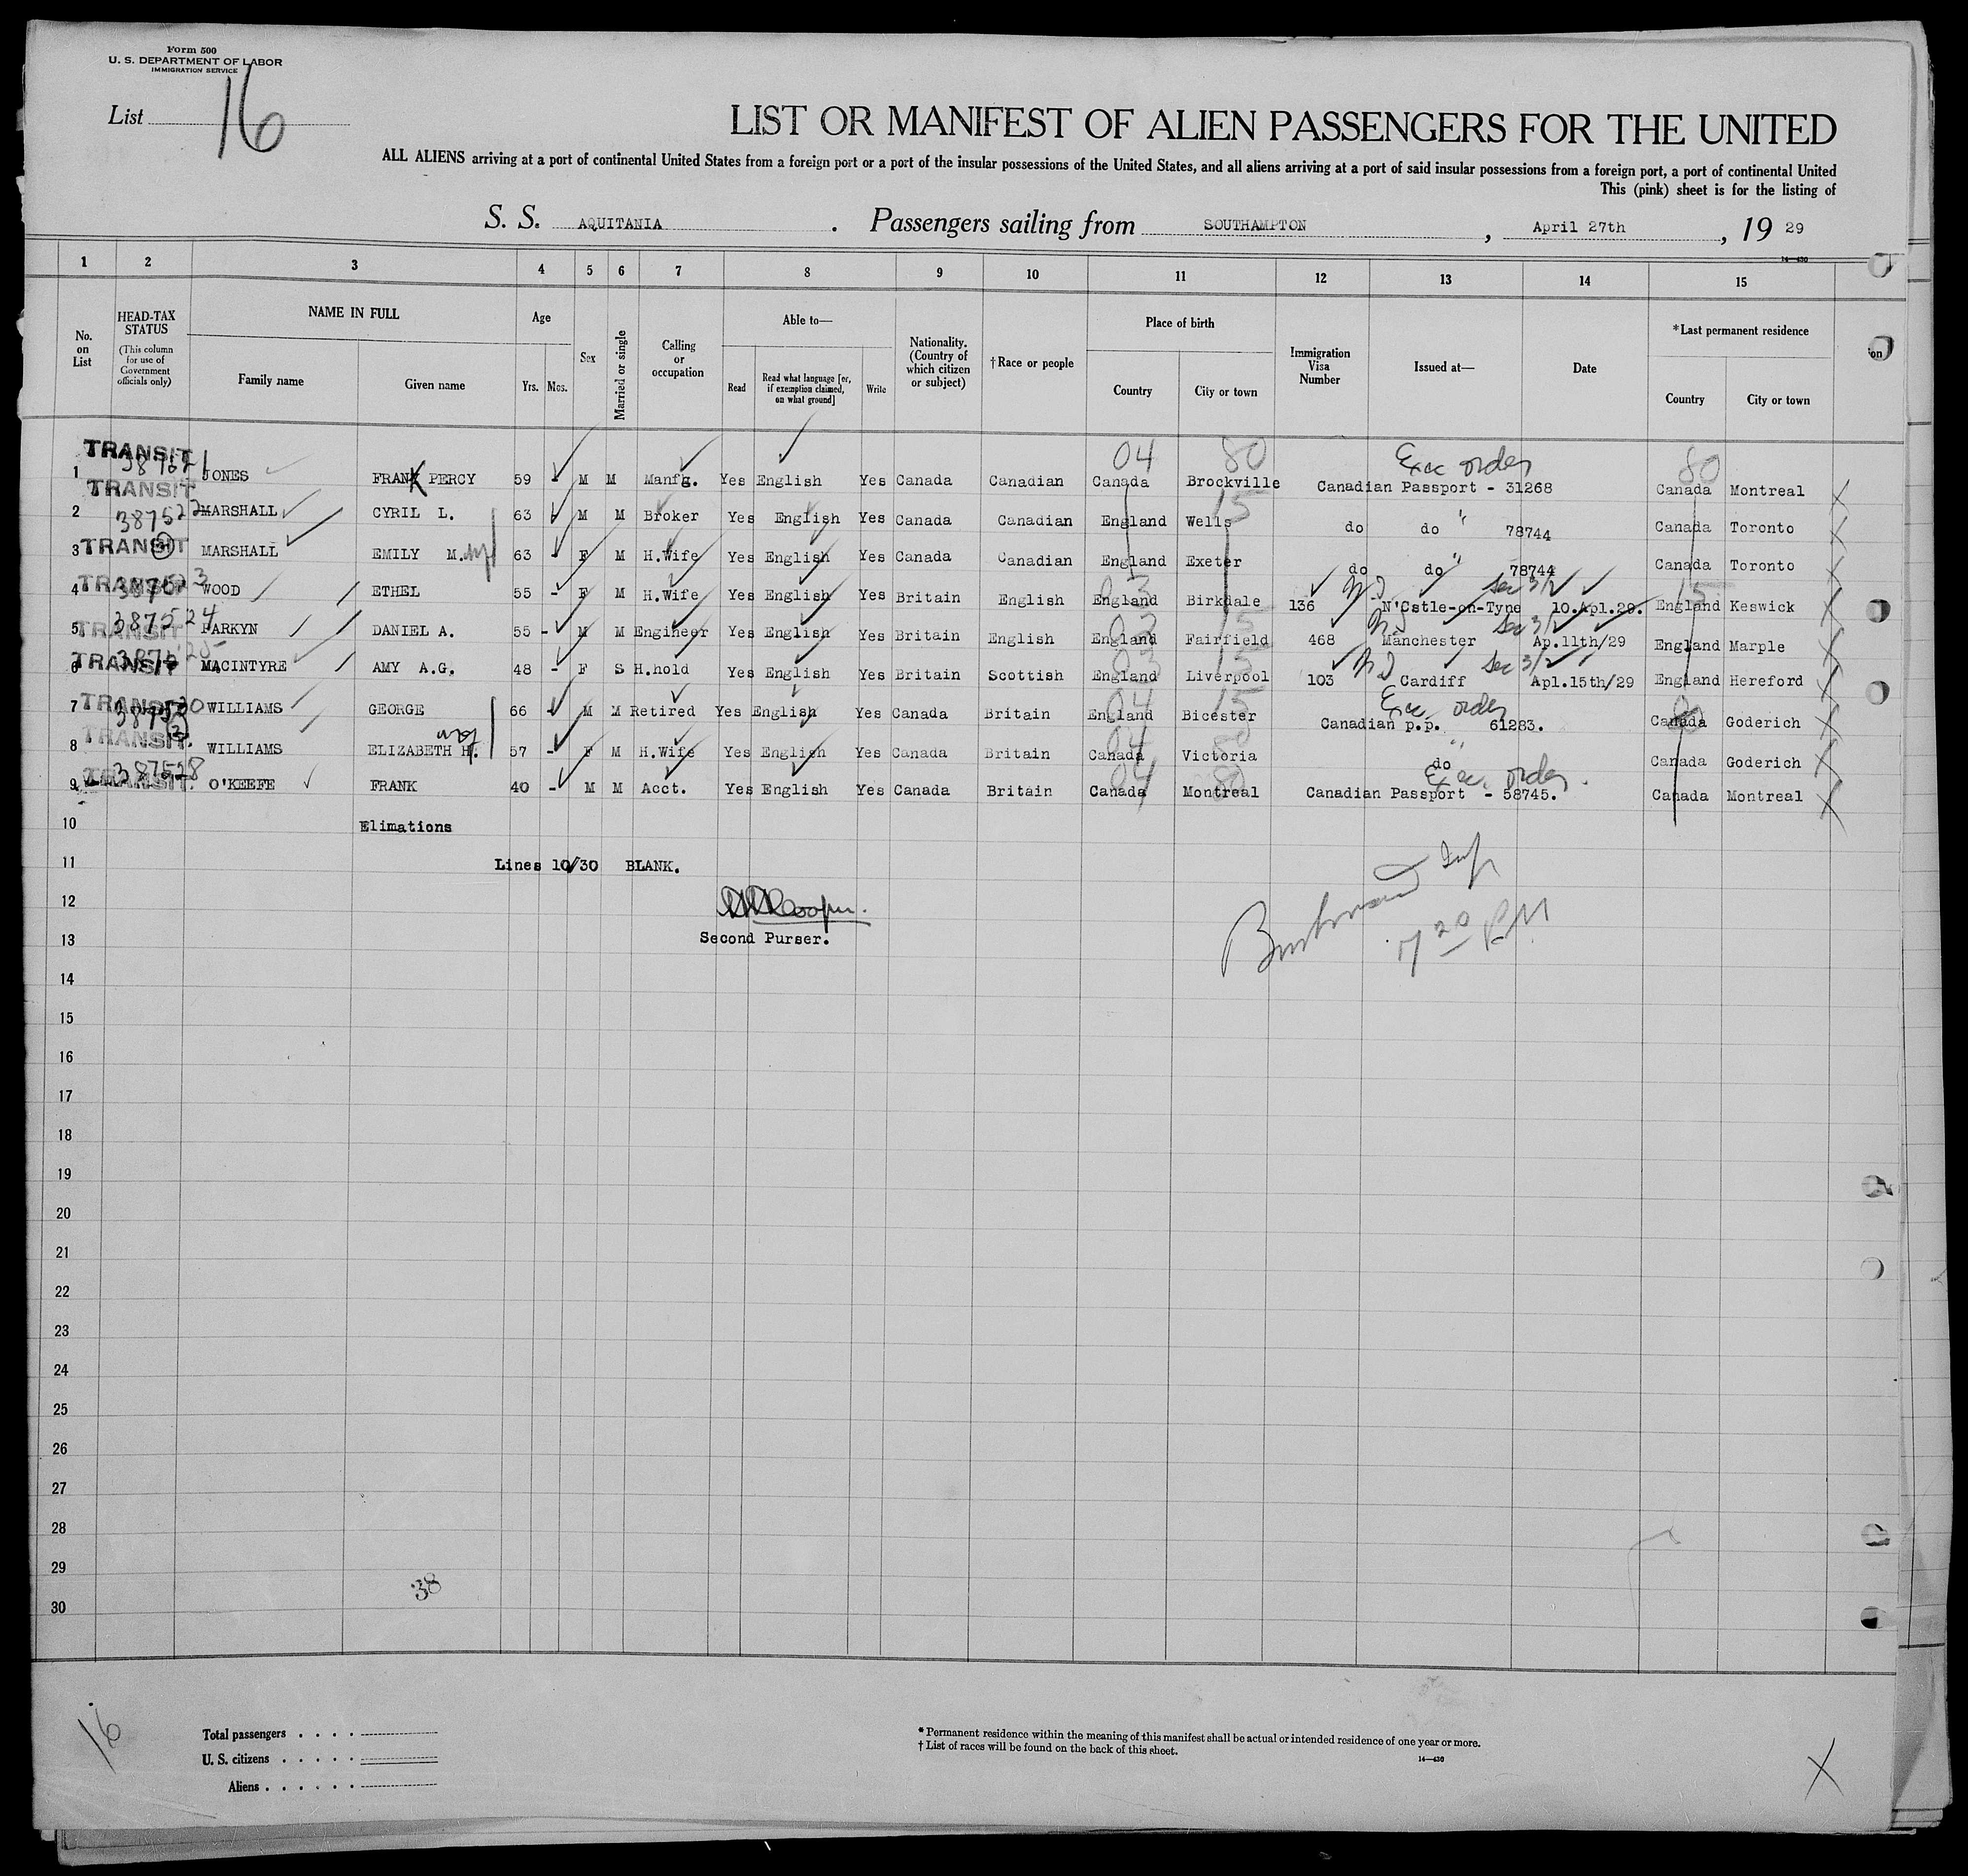 Form 500
U. S. DEPARTMENT OF LABOR
IMMIGRATION SERVICE
List 16
LIST OR MANIFEST OF ALIEN PASSENGERS FOR THE UNITED
ALL ALIENS arriving at a port of continental United States from a foreign port or a port of the insular possessions of the United States, and all aliens arriving at a port of said insular possessions from a foreign port, a port of continental United
This (pink) sheet is for the listing of
S. S. AQUITANIA . Passengers sailing from SOUTHAMPTON , April 27th , 19 29
14—430
1 2 3 4 5 6 7 8 9 10 11 12 13 14 15
No. on List
HEAD-TAX STATUS
(This column for use of Government officials only)
NAME IN FULL
Family name Given name
Age
Yrs. Mos.
Sex
Married or single
Calling or occupation
Able to—
Read
Read what language [or, if exemption claimed, on what ground]
Write
Nationality. (Country of which citizen or subject)
†Race or people
Place of birth
Country City or town
Immigration Visa Number
Issued at—
Date
*Last permanent residence
Country City or town
04 80 Exec order 80
1 TRANSIT JONES FRANK PERCY 59 M M Manfg. Yes English Yes Canada Canadian Canada Brockville Canadian Passport - 31268 Canada Montreal
2 TRANSIT 387522 MARSHALL CYRIL L. 63 M M Broker Yes English Yes Canada Canadian England Wells do do " 78744 Canada Toronto
3 TRANSIT MARSHALL EMILY M. 63 F M H.Wife Yes English Yes Canada Canadian England Exeter do do " 78744 Canada Toronto
4 TRANSIT WOOD ETHEL 55 - F M H.Wife Yes English Yes Britain English England Birkdale 136 N'Cstle-on-Tyne 10.Apl.29. England Keswick
Sec 3/2
5 TRANSIT 387524 PARKYN DANIEL A. 55 - M M Engineer Yes English Yes Britain English England Fairfield 468 Manchester Ap.11th/29 England Marple
Sec 3/2
6 TRANSIT MACINTYRE AMY A.G. 48 - F S H.hold Yes English Yes Britain Scottish England Liverpool 103 Cardiff Apl.15th/29 England Hereford
Sec 3/2
Exec order
7 TRANSIT WILLIAMS GEORGE 66 - M M Retired Yes English Yes Canada Britain England Bicester Canadian p.p. 61283. Canada Goderich
8 TRANSIT. WILLIAMS ELIZABETH H. 57 - F M H.Wife Yes English Yes Canada Britain Canada Victoria do " Canada Goderich
Exec. order.
9 TRANSIT. 387528 O'KEEFE FRANK 40 - M M Acct. Yes English Yes Canada Britain Canada Montreal Canadian Passport - 58745. Canada Montreal
10 Elimations
11 Lines 10/30 BLANK.
12
13 Second Purser.
7 20 PM
14
15
16
17
18
19
20
21
22
23
24
25
26
27
28
29
30
38
16
Total passengers . . . .
U. S. citizens . . . . .
Aliens . . . . . .
* Permanent residence within the meaning of this manifest shall be actual or intended residence of one year or more.
† List of races will be found on the back of this sheet.
14—430
X